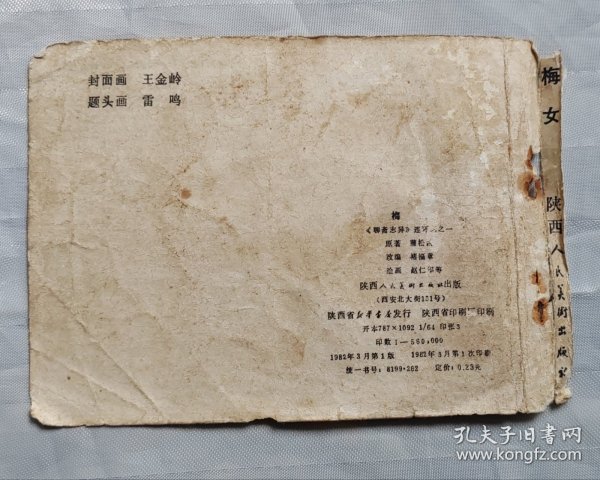 封面画 王金岭
题头画 雷 鸣
梅
《聊斋志异》连环 之一
原著 蒲松
改编
绘画 赵仁
陕西人民美术出版社出版
(西安北大街131号)
陕西省新华书店发行 陕西省印刷厂印刷
开本787×1092 1/64 印张3
印数1—560,000
1982年3月第1版 1982年3月第1次印刷
统一书号：8199·262 定价：0.23元
梅女 陕西人民美术出版社
孔夫子旧书网
www.kongfz.com